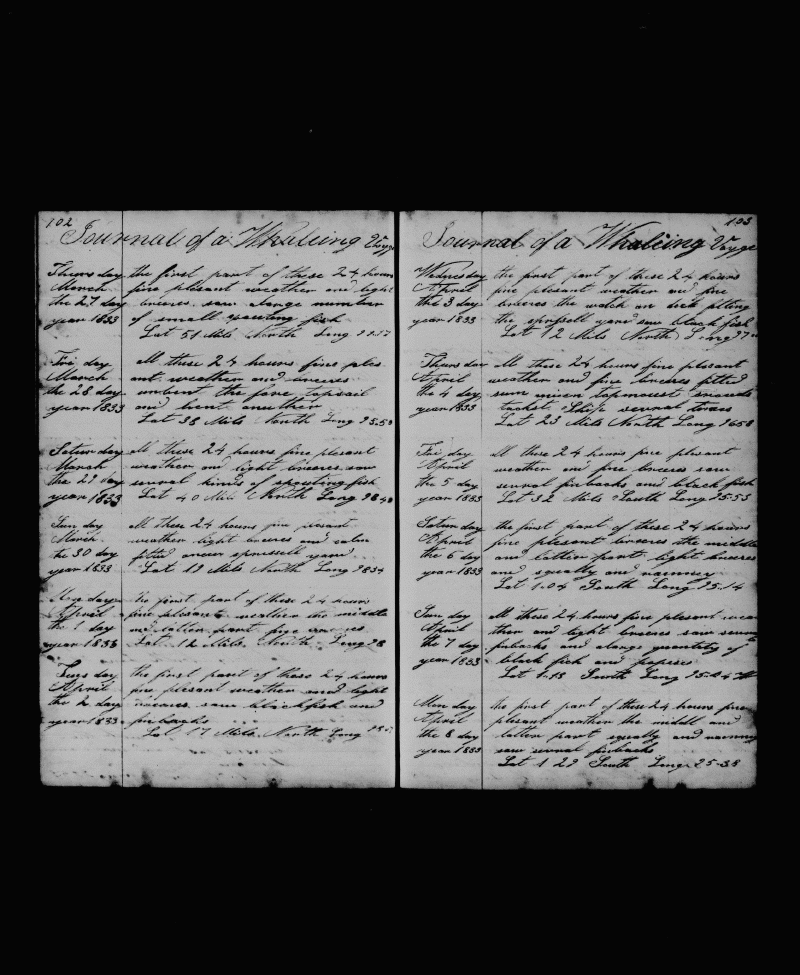 102
Journal of a Whaleing Voyge
Thurs day the first part of these 24 hours
March fine plesant weather and light
the 27 day breeses saw alarge number
year 1833 of small spouting fish
Lat 51 Mils North Long
Fri day All these 24 hours fine ples
March ant weather and breeses
the 28 day unbent the fore topsail
year 1833 and bent another
Lat 38 Mils North Long 95.53
Satur day All these 24 hours fine plesant
March weather and light breeses saw
the 29 day sevral kinds of spouting fish
year 1833 Lat 40 Mils North Long 98 40
Sun day All these 24 hours fine plesant
March weather light breeses and calm
the 30 day fitted spritsell yard
year 1833 Lat 19 Mils North Long 98 34
Mon day the first part of these 24 hours
April fine plesant weather the middle
the 1 day and latter part fine breeses
year 1833 Lat 12 Mils North Long 98
Tues day the first part of these 24 hours
April fine plesant weather and light
the 2 day breeses saw blackfish and
year 1833 finbacks
Lat 17 Mils North Long
103
Journal of a Whaleing Voyge
Wednesday the first part of these 24 hours
April fine plesant weather and fine
the 3 day breeses the watch on deck fitting
year 1833 the spritsell yard saw black fish
Lat 12 Mils North Long 97
Thurs day All these 24 hours fine plesant
April weather and fine breeses fitted
the 4 day sum mizen topmoust
year 1833 tackel Ship sevral times
Lat 23 Mils North Long 96 58
Fri day All these 24 hours fine plesant
April weather and fine breeses saw
the 5 day sevral finbacks and black fish
year 1833 Lat 32 Mils South Long 95-53
Satur day the first part of these 24 hours
April fine plesent breeses the middle
the 6 day and latter part light breeses
year 1833 and squally and raney
Lat 1.04 South Long 95.14
Sun day All these 24 hours fine plesent wea
April ther and light breeses saw sevral
the 7 day finbacks and alarge quantity of
year 1833 black fish and popises
Lat 1.18 South Long 95.04
Mon day the first part of these 24 hours fine
April plesant weather the middl and
the 8 day latter part squally and raney
year 1833 saw sevral finbacks
Lat 1 29 South Long 95-38